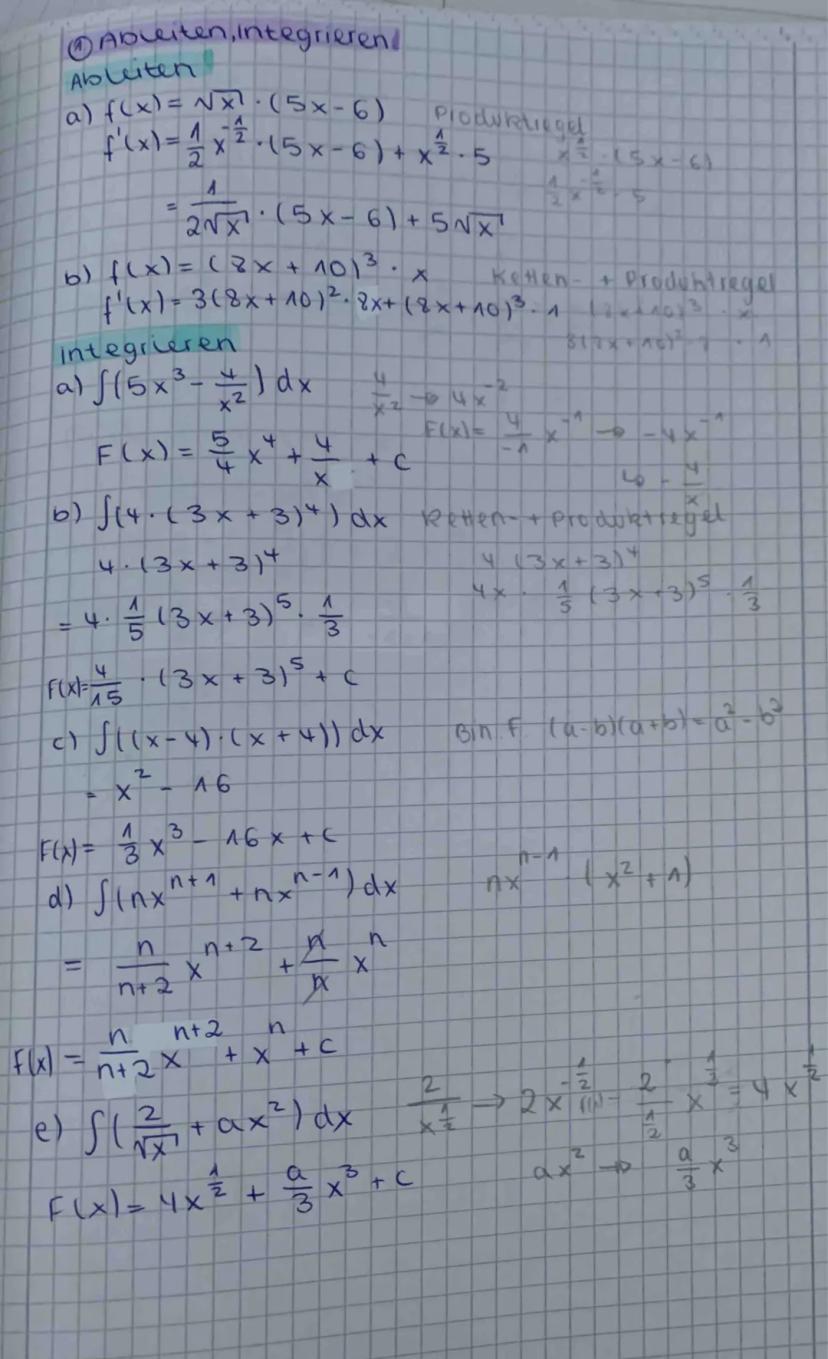 ① Ableiten, Integrieren
Ableiten
a) f(x) = √x · (5x - 6) Produktregel
f'(x) = 1/2 x^(-1/2) · (5x - 6) + x^(1/2) · 5 x^(1/2) · (5x - 6)
= 1/(2√x) · (5x - 6) + 5√x 1/2 x^(-1/2) · 5
b) f(x) = (8x + 10)³ · x Ketten- + Produktregel
f'(x) = 3(8x + 10)² · 8x + (8x + 10)³ · 1 (8x+10)³ · x
Integrieren
a) ∫(5x³ - 4/x²) dx 4/x² → 4x⁻²
F(x) = 4/-1 x⁻¹ → -4x⁻¹
F(x) = 5/4 x⁴ + 4/x + c ↳ - 4/x
b) ∫(4 · (3x + 3)⁴) dx Ketten- + Produktregel
4 · (3x + 3)⁴ 4 (3x + 3)⁴
= 4 · 1/5 (3x + 3)⁵ · 1/3 4x · 1/5 (3x + 3)⁵ · 1/3
F(x) = 4/15 · (3x + 3)⁵ + c
c) ∫((x - 4) · (x + 4)) dx Bin. F. (a-b)(a+b) = a² - b²
= x² - 16
F(x) = 1/3 x³ - 16x + c
d) ∫(nx^(n+1) + nx^(n-1)) dx nx^(n-1) (x² + 1)
= n/(n+2) x^(n+2) + n/n x^n
F(x) = n/(n+2) x^(n+2) + x^n + c
e) ∫(2/√x + ax²) dx 2/x^(1/2) → 2x^(-1/2) 2/(1/2) x^(1/2) = 4x^(1/2)
F(x) = 4x^(1/2) + a/3 x³ + c ax² → a/3 x³